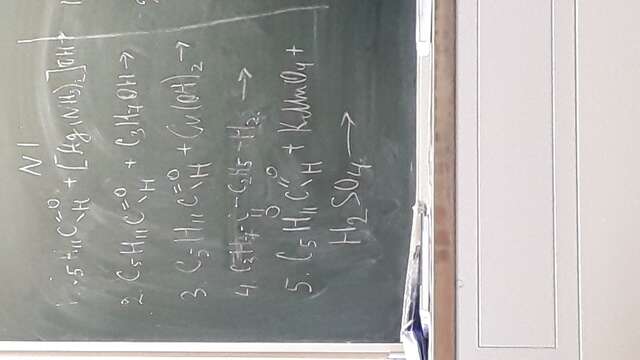 N1
1. C5H11C=O\H + [Ag(NH3)2]OH→
2. C5H11C=O\H + C3H7OH→
3. C5H11C=O\H + Cu(OH)2→
4. C3H7-C-C2H5-H2 →
O
5. C5H11C=O\H + KMnO4+
H2SO4→